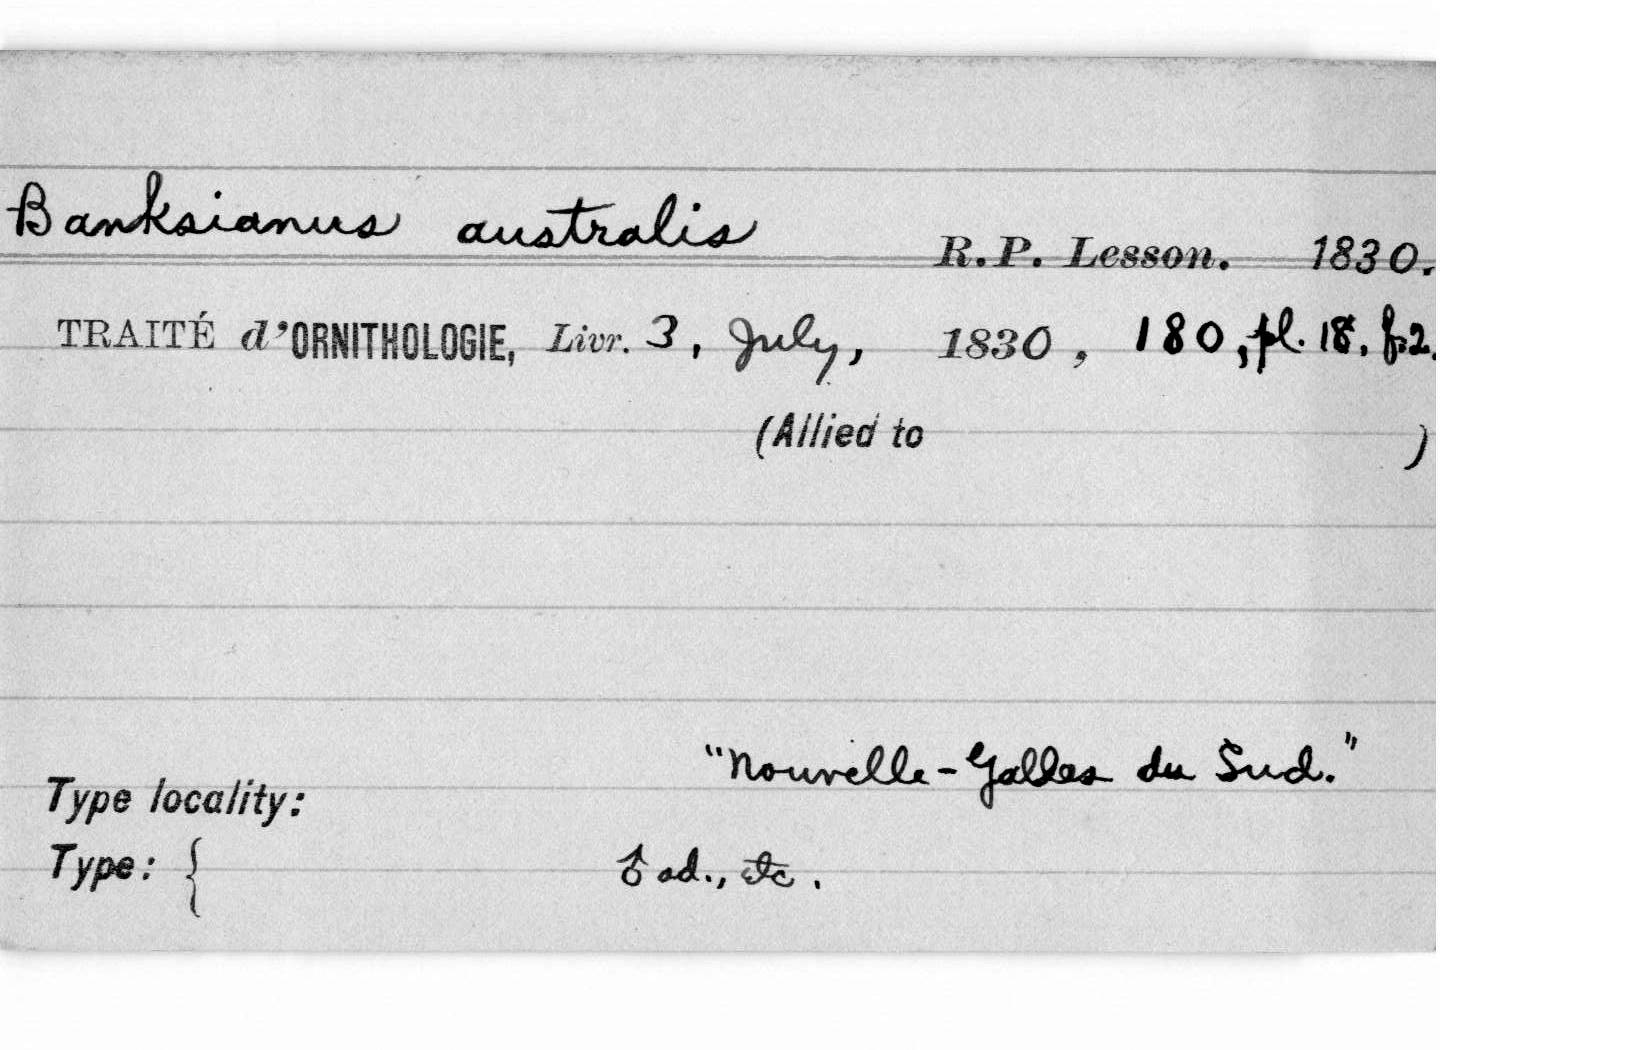 Banksianus australis R.P. Lesson. 1830.
TRAITÉ d'ORNITHOLOGIE, Livr. 3, July, 1830, 180, pl. 18, f.2.
(Allied to )
"Nouvelle-Galles du Sud."
Type locality:
Type: { ♂ ad., etc.